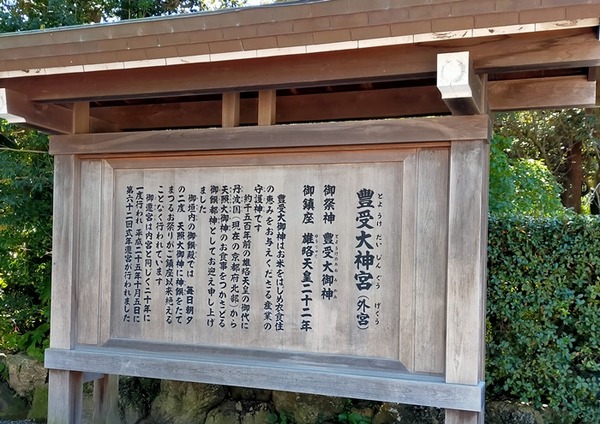 豊受大神宮(外宮)
とようけ だい じん ぐう げくう
御祭神 豊受大御神
とようけのおおみかみ
御鎮座 雄略天皇二十二年
豊受大御神はお米をはじめ衣食住
の恵みをお与えくださる産業の
守護神です
約千五百年前の雄略天皇の御代に
丹波国(現在の京都府北部)から
天照大御神のお食事をつかさどる
御饌都神としてお迎え申し上げ
ました
御垣内の御饌殿では 毎日朝夕
の二度 天照大御神に神饌をたて
まつるお祭りがご鎮座以来絶える
ことなく行われています
御遷宮は内宮と同じく二十年に
一度行われ 平成二十五年十月五日に
第六十二回式年遷宮が行われました